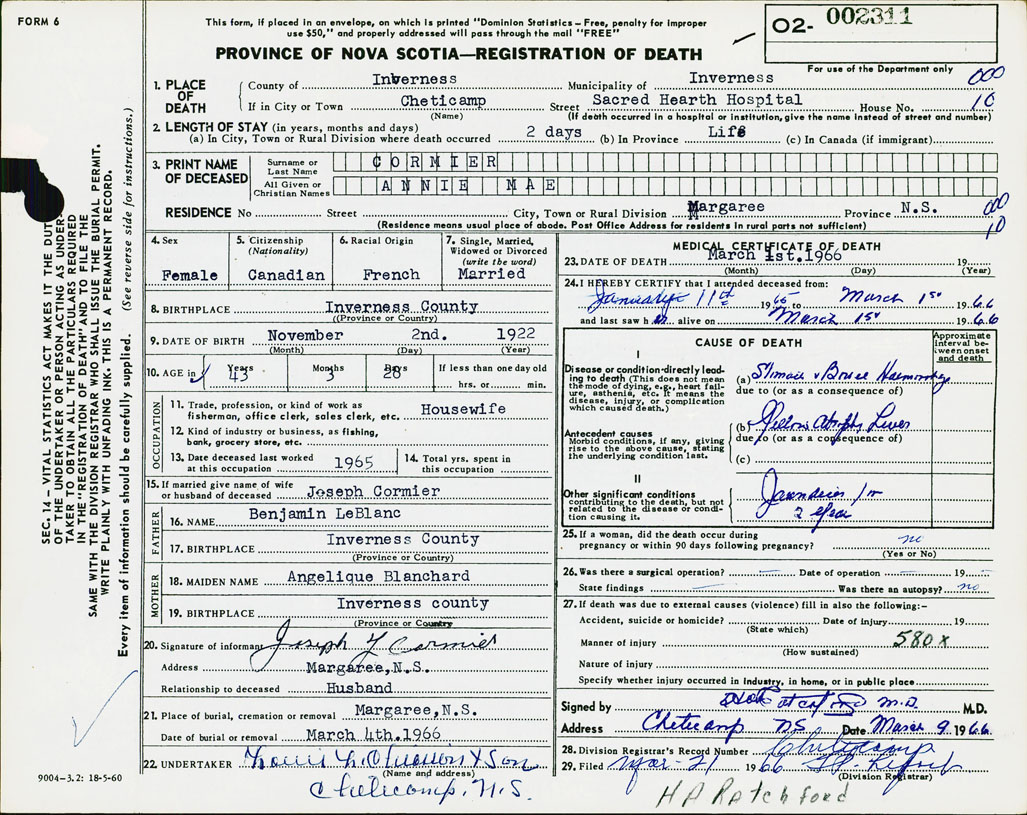 FORM 6
This form, if placed in an envelope, on which is printed "Dominion Statistics – Free, penalty for improper
use $50," and properly addressed will pass through the mail "FREE"
PROVINCE OF NOVA SCOTIA—REGISTRATION OF DEATH
O2- 002311
For use of the Department only
1. PLACE OF DEATH
County of Inverness Municipality of Inverness 000
If in City or Town Cheticamp Street Sacred Hearth Hospital House No. 10
(Name) (If death occurred in a hospital or institution, give the name instead of street and number)
2. LENGTH OF STAY (in years, months and days)
(a) In City, Town or Rural Division where death occurred 2 days (b) In Province Life (c) In Canada (if immigrant)
3. PRINT NAME OF DECEASED
Surname or Last Name CORMIER
All Given or Christian Names ANNIE MAE
RESIDENCE No Street City, Town or Rural Division Margaree Province N.S. 000
(Residence means usual place of abode. Post Office Address for residents in rural parts not sufficient) 10
4. Sex
Female
5. Citizenship
(Nationality)
Canadian
6. Racial Origin
French
7. Single, Married,
Widowed or Divorced
(write the word)
Married
8. BIRTHPLACE Inverness County
(Province or Country)
9. DATE OF BIRTH November 2nd. 1922
(Month) (Day) (Year)
10. AGE in Years Months Days If less than one day old
43 3 28 hrs. or min.
OCCUPATION
11. Trade, profession, or kind of work as
fisherman, office clerk, sales clerk, etc. Housewife
12. Kind of industry or business, as fishing,
bank, grocery store, etc.
13. Date deceased last worked
at this occupation 1965
14. Total yrs. spent in
this occupation
15. If married give name of wife
or husband of deceased Joseph Cormier
FATHER
16. NAME Benjamin LeBlanc
17. BIRTHPLACE Inverness County
(Province or Country)
MOTHER
18. MAIDEN NAME Angelique Blanchard
19. BIRTHPLACE Inverness county
(Province or Country)
20. Signature of informant Joseph Y Cormier
Address Margaree, N.S.
Relationship to deceased Husband
21. Place of burial, cremation or removal Margaree, N.S.
Date of burial or removal March 4th.1966
22. UNDERTAKER & Son
(Name and address)
Cheticamp, N.S.
MEDICAL CERTIFICATE OF DEATH
23. DATE OF DEATH March 1st.1966 19
(Month) (Day) (Year)
24. I HEREBY CERTIFY that I attended deceased from:
January 11th 1965 to March 1st 1966
and last saw h er alive on March 1st 1966
CAUSE OF DEATH
Approximate
interval be-
tween onset
and death
I
Disease or condition directly lead-
ing to death (This does not mean
the mode of dying, e.g., heart fail-
ure, asthenia, etc. It means the
disease, injury, or complication
which caused death.)
(a) Stomach & Haemorrhage
due to (or as a consequence of)
Antecedent causes
Morbid conditions, if any, giving
rise to the above cause, stating
the underlying condition last.
(b) Yellow Atrophy Liver
due to (or as a consequence of)
(c)
II
Other significant conditions
contributing to the death, but not
related to the disease or condi-
tion causing it.
Jaundice 1 or
2 year
25. If a woman, did the death occur during
pregnancy or within 90 days following pregnancy? no
(Yes or No)
26. Was there a surgical operation? — Date of operation — 19 —
State findings — Was there an autopsy? no
27. If death was due to external causes (violence) fill in also the following:–
Accident, suicide or homicide? Date of injury 19
(State which)
Manner of injury 580 x
(How sustained)
Nature of injury
Specify whether injury occurred in industry, in home, or in public place
Signed by M.D. M.D.
Address Cheticamp NS Date March 9 1966
28. Division Registrar's Record Number Cheticamp
29. Filed Mar - 21 1966
(Division Registrar)
H A Ratchford
9004–3.2: 18-5-60
SEC. 14 – VITAL STATISTICS ACT MAKES IT THE DUTY
OF THE UNDERTAKER OR PERSON ACTING AS UNDER-
TAKER TO OBTAIN ALL THE PARTICULARS REQUIRED
IN THE "REGISTRATION OF DEATH" AND TO FILE THE
SAME WITH THE DIVISION REGISTRAR WHO SHALL ISSUE THE BURIAL PERMIT.
WRITE PLAINLY WITH UNFADING INK. THIS IS A PERMANENT RECORD.
Every item of information should be carefully supplied. (See reverse side for instructions.)